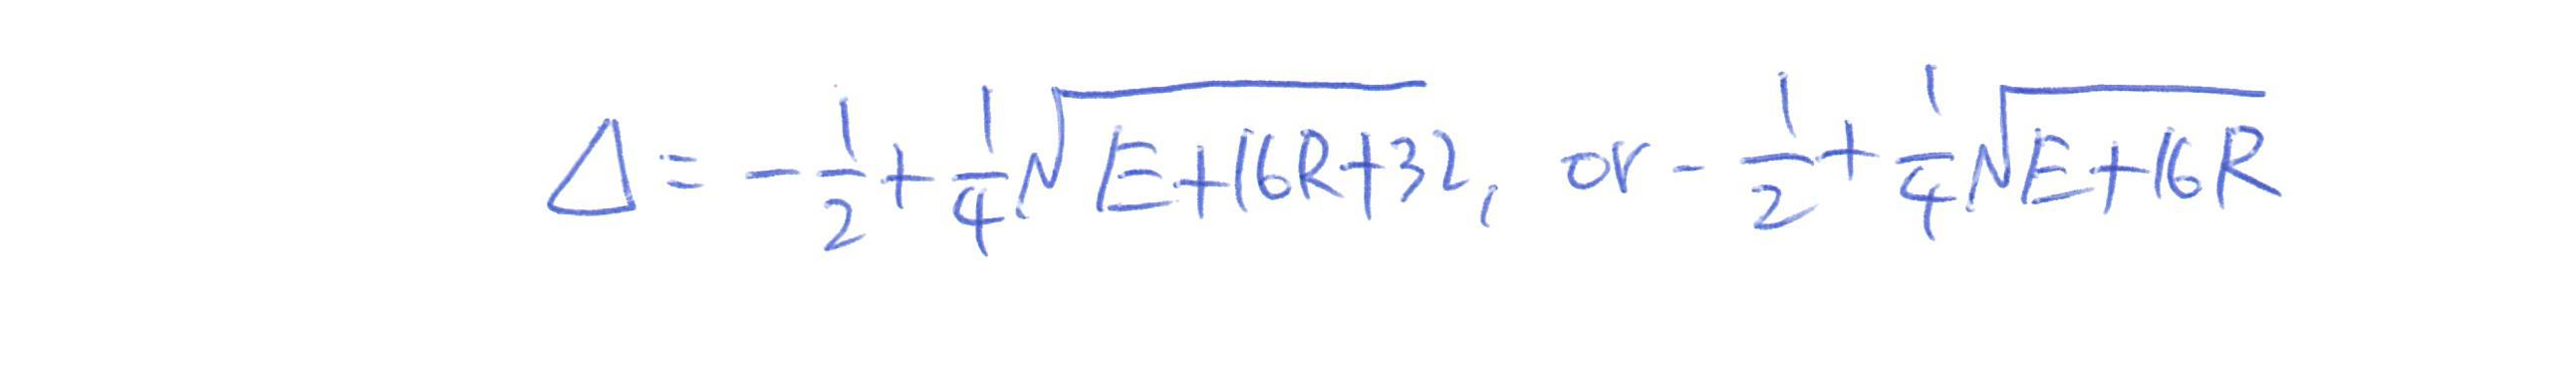 Δ = -1/2 + 1/4 √(E+16R+32), or -1/2 + 1/4 √(E+16R)